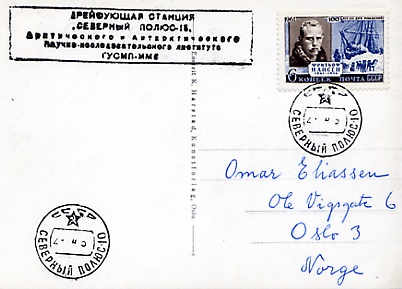 ДРЕЙФУЮЩАЯ СТАНЦИЯ
„СЕВЕРНЫЙ ПОЛЮС-10"
Арктического и Антарктического
Научно-исследовательского института
ГУСМП-ММФ
1961
100 ЛЕТ СО ДНЯ РОЖДЕНИЯ
ФРИТЬОФ
НАНСЕН
6 КОПЕЕК ПОЧТА СССР
СССР
СЕВЕРНЫЙ ПОЛЮС-10
Ernst K. Harstad, Kunstforlag, Oslo
Omar Eliassen
Ole Vigsgate 6
Oslo 3
Norge
СССР
СЕВЕРНЫЙ ПОЛЮС-10